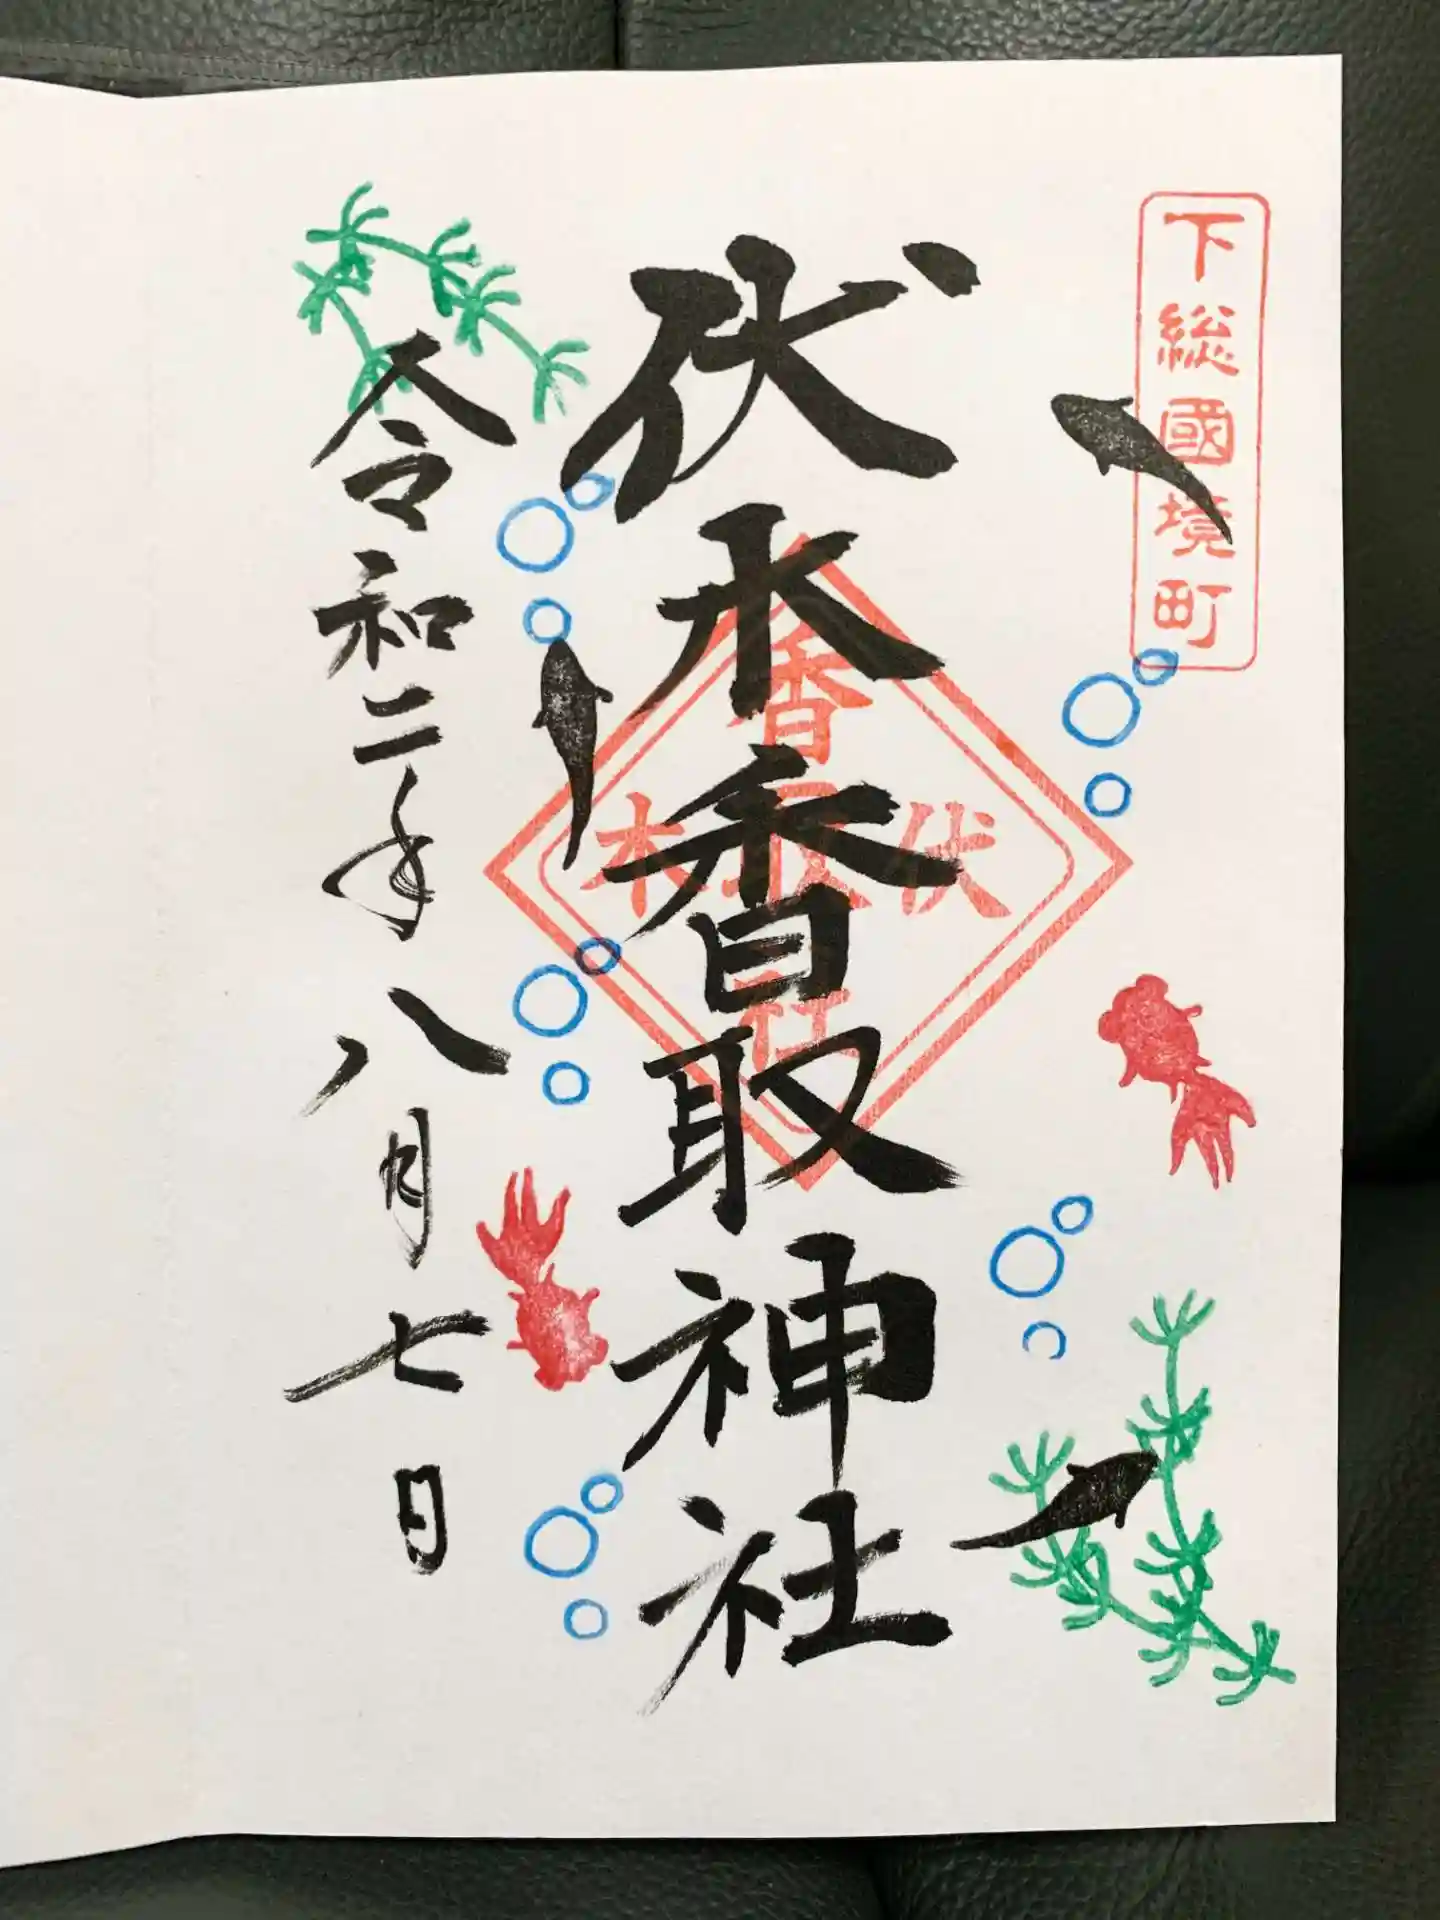 下総國境町
伏木香取神社
香取
伏木
社
令和二年八月七日